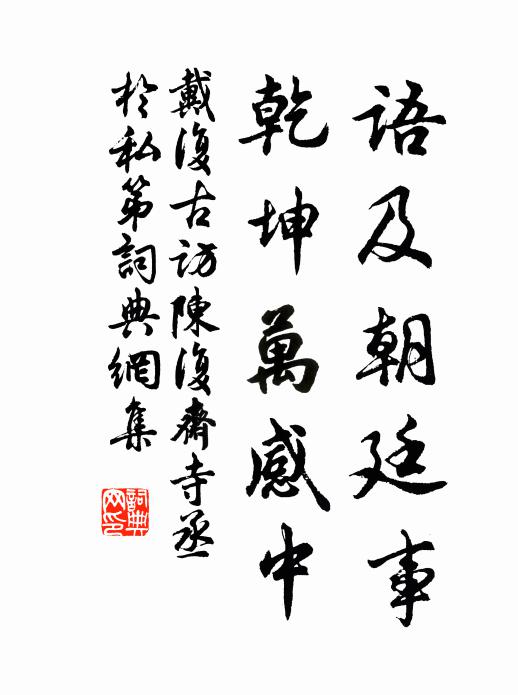 語及朝廷事
乾坤萬感中
戴復古訪陳復齋寺丞
於私第詞典網集
詞典網印